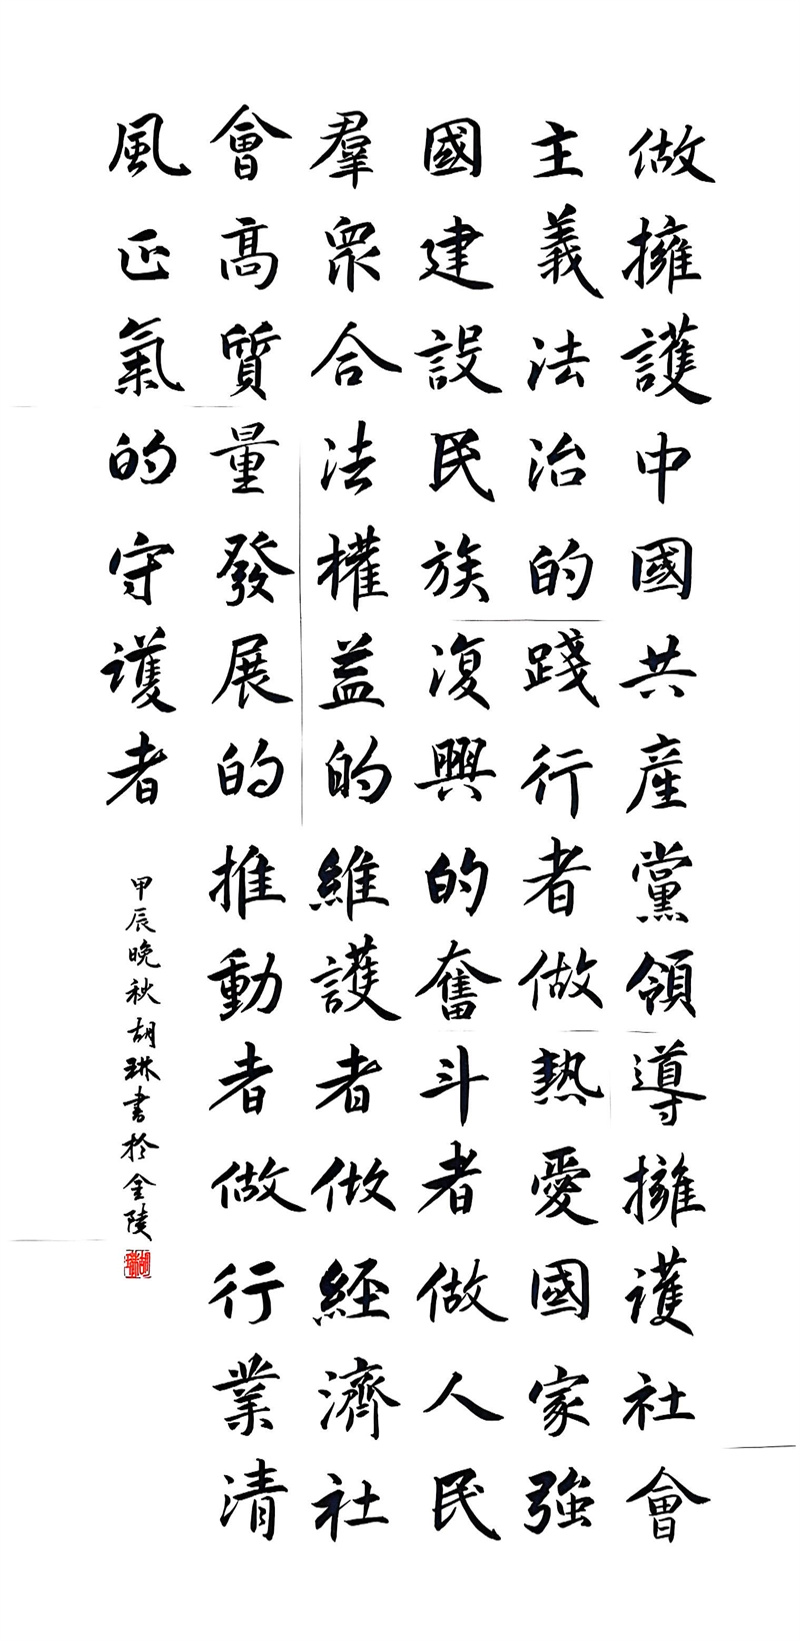 做擁護中國共產黨領導擁護社會
主義法治的踐行者做熱愛國家強
國建設民族復興的奮斗者做人民
羣眾合法權益的維護者做經濟社
會高質量發展的推動者做行業清
風正氣的守護者
甲辰晚秋胡琳書於金陵